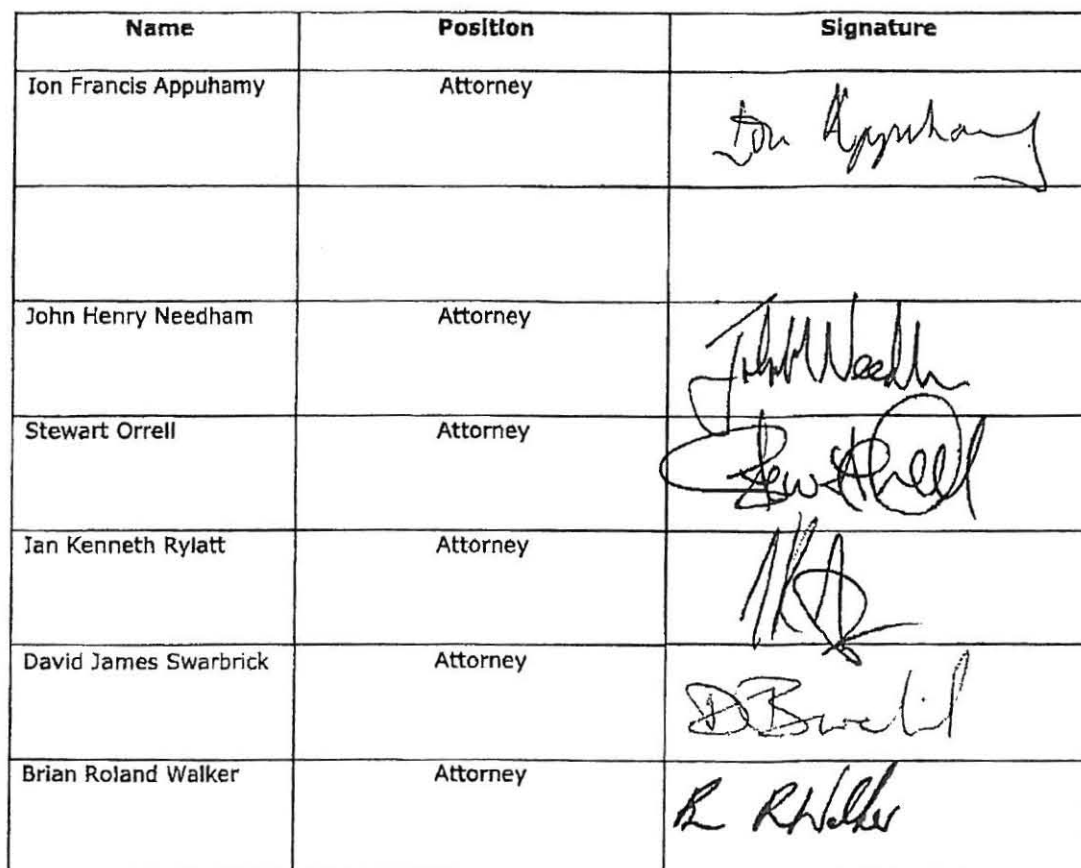 Name Position Signature
Ion Francis Appuhamy Attorney
Ion Appuhamy
John Henry Needham Attorney
Stewart Orrell Attorney
Ian Kenneth Rylatt Attorney
David James Swarbrick Attorney
Brian Roland Walker Attorney
R Walker